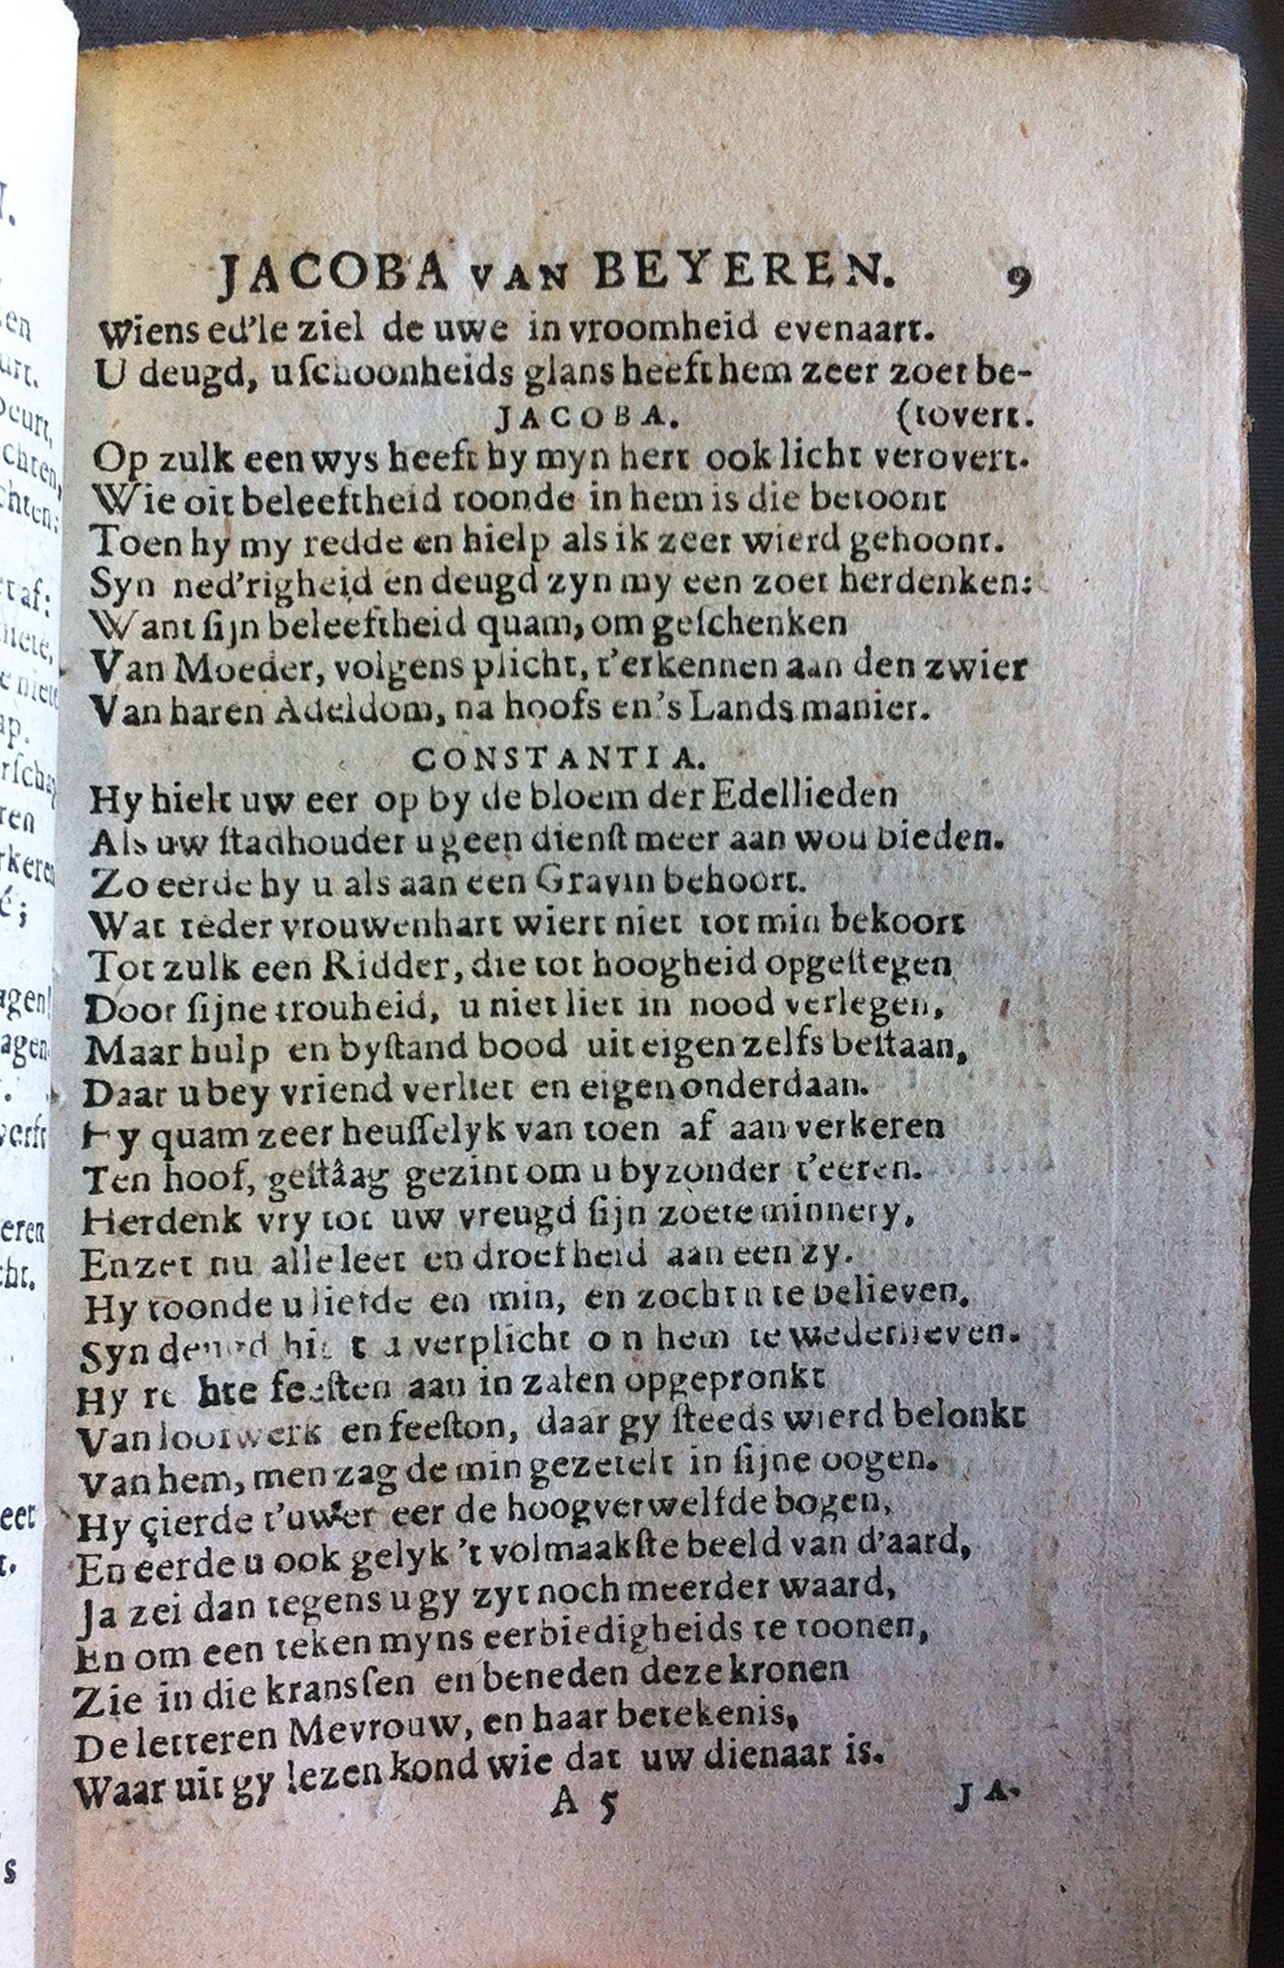 JACOBA VAN BEYEREN. 9
Wiens ed'le ziel de uwe in vroomheid evenaart.
U deugd, u ſchoonheids glans heeft hem zeer zoet be-
JACOBA. (tovert.
Op zulk een wys heeft hy myn hert ook licht verovert.
Wie oit beleeftheid toonde in hem is die betoont
Toen hy my redde en hielp als ik zeer wierd gehoont.
Syn ned'righeid en deugd zyn my een zoet herdenken:
Want ſijn beleeftheid quam, om geſchenken
Van Moeder, volgens plicht, t'erkennen aan den zwier
Van haren Adeldom, na hoofs en 's Lands manier.
CONSTANTIA.
Hy hielt uw eer op by de bloem der Edellieden
Als uw ſtadhouder u geen dienſt meer aan wou bieden.
Zo eerde hy u als aan een Gravin behoort.
Wat teder vrouwenhart wiert niet tot min bekoort
Tot zulk een Ridder, die tot hoogheid opgeſtegen
Door ſijne trouheid, u niet liet in nood verlegen,
Maar hulp en byſtand bood uit eigen zelfs beſtaan,
Daar u bey vriend verliet en eigen onderdaan.
Hy quam zeer heuſſelyk van toen af aan verkeren
Ten hoof, geſtâag gezint om u byzonder t'eeren.
Herdenk vry tot uw vreugd ſijn zoete minnery,
En zet nu alle leet en droefheid aan een zy.
Hy toonde u liefde en min, en zocht u te believen,
Syn deugd u verplicht om hem te wederlieven.
Hy rechte feeſten aan in zalen opgepronkt
Van loofwerk en feeſton, daar gy ſteeds wierd belonkt
Van hem, men zag de min gezetelt in ſijne oogen.
Hy çierde t'uwer eer de hoogverwelfde bogen,
En eerde u ook gelyk 't volmaakſte beeld van d'aard,
Ja zei dan tegens u gy zyt noch meerder waard,
En om een teken myns eerbiedigheids te toonen,
Zie in die kransſen en beneden deze kronen
De letteren Mevrouw, en haar betekenis,
Waar uit gy lezen kond wie dat uw dienaar is.
A 5 JA-